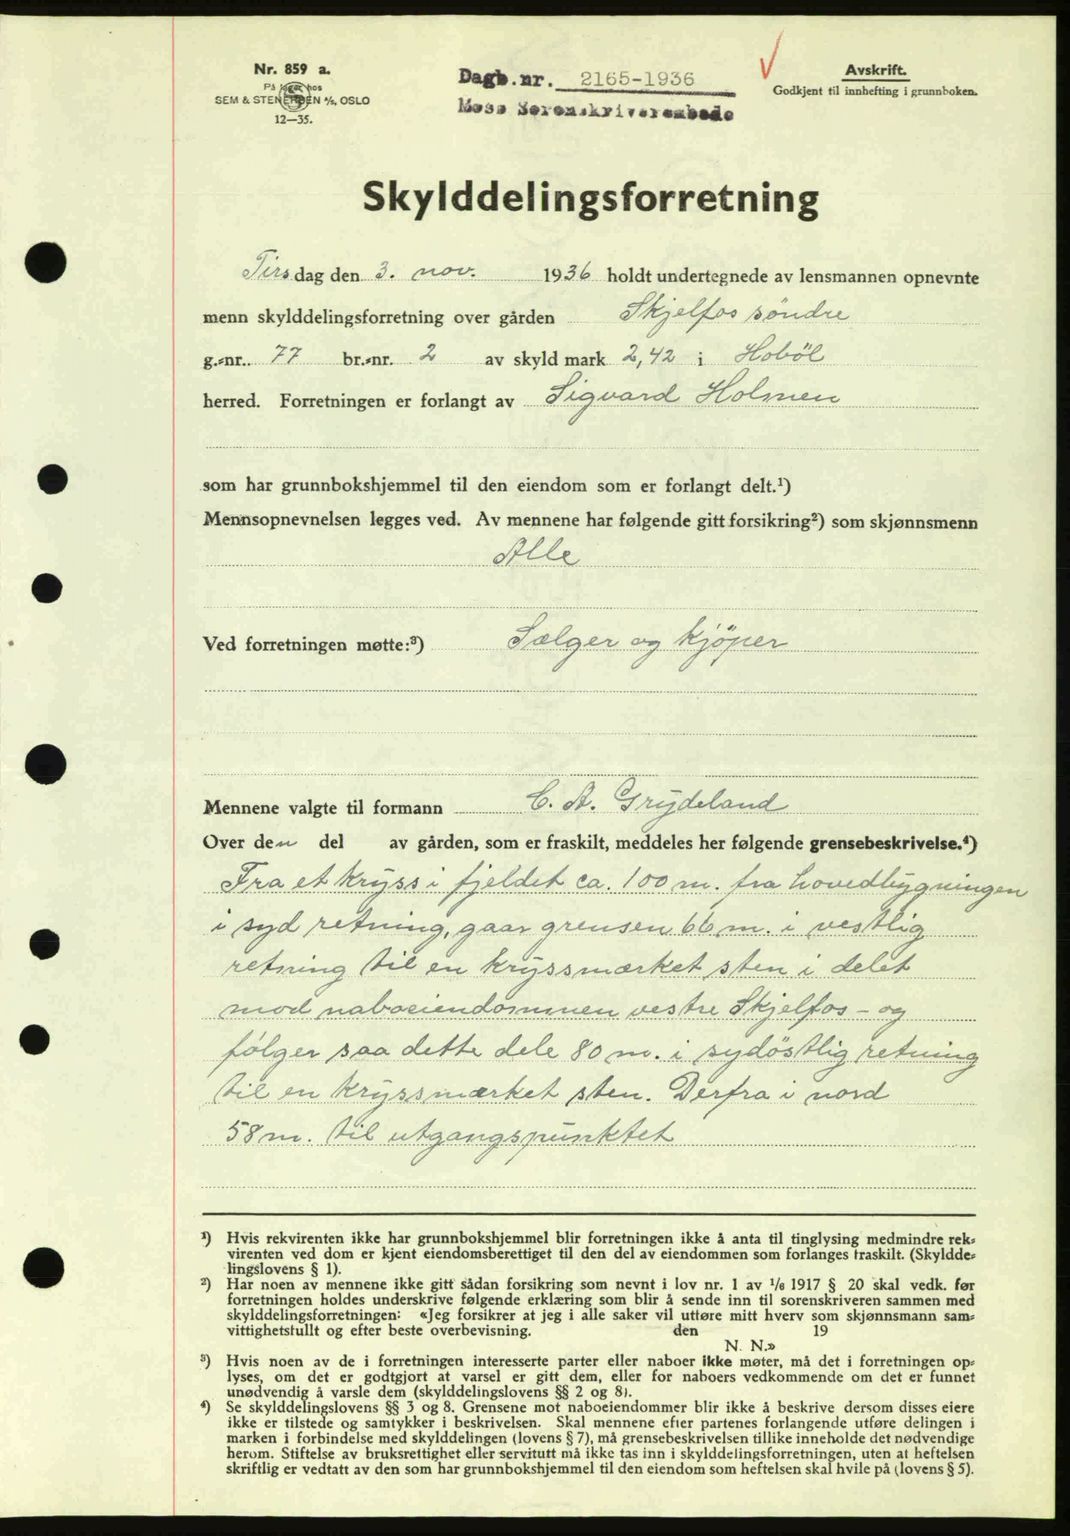 Nr. 859 a.
På lager hos
SEM & STENERSEN A/S, OSLO
12—35.
Dagb.nr. 2165-1936
Moss Sorenskriverembede
Avskrift.
Godkjent til innhefting i grunnboken.
Skylddelingsforretning
Tirsdag den 3. nov. 1936 holdt undertegnede av lensmannen opnevnte
menn skylddelingsforretning over gården Skjelfos söndre
g.-nr. 77 br.-nr. 2 av skyld mark 2,42 i Hoböl
herred. Forretningen er forlangt av Sigvard Holmen
som har grunnbokshjemmel til den eiendom som er forlangt delt.¹)
Mennsopnevnelsen legges ved. Av mennene har følgende gitt forsikring²) som skjønnsmenn
Alle
Ved forretningen møtte:³) Sælger og kjöper
Mennene valgte til formann C. A. Grydeland
Over den del av gården, som er fraskilt, meddeles her følgende grensebeskrivelse.⁴)
Fra et kryss i fjeldet ca. 100 m. fra hovedbygningen
i syd retning, gaar grensen 66 m. i vestlig
retning til en kryssmærket sten i delet
mod naboeiendommen vestre Skjelfos - og
fölger saa dette dele 80 m. i sydöstlig retning
til en kryssmærket sten. Derfra i nord
58 m. til utgangspunktet
¹) Hvis rekvirenten ikke har grunnbokshjemmel blir forretningen ikke å anta til tinglysing medmindre rek-
virenten ved dom er kjent eiendomsberettiget til den del av eiendommen som forlanges fraskilt. (Skyldde-
lingslovens § 1).
²) Har noen av mennene ikke gitt sådan forsikring som nevnt i lov nr. 1 av 1/6 1917 § 20 skal vedk. før
forretningen holdes underskrive følgende erklæring som blir å sende inn til sorenskriveren sammen med
skylddelingsforretningen: «Jeg forsikrer at jeg i alle saker vil utføre mitt hverv som skjønnsmann sam-
vittighetsfullt og efter beste overbevisning. den 19
N. N.»
³) Hvis noen av de i forretningen interesserte parter eller naboer ikke møter, må det i forretningen op-
lyses, om det er godtgjort at varsel er gitt dem, eller for naboers vedkommende om det er funnet
unødvendig å varsle dem (skylddelingslovens §§ 2 og 8).
⁴) Se skylddelingslovens §§ 3 og 8. Grensene mot naboeiendommer blir ikke å beskrive dersom disses eiere
ikke er tilstede og samtykker i beskrivelsen. Skal mennene efter partenes forlangende utføre delingen i
marken i forbindelse med skylddelingen (lovens § 7), må grensebeskrivelsen tillike inneholde det nødvendige
herom. Stiftelse av bruksrettighet eller servitutt må ikke tas inn i skylddelingsforretningen, uten at heftelsen
skriftlig er vedtatt av den som har grunnbokshjemmel til den eiendom som heftelsen skal hvile på (lovens § 5).